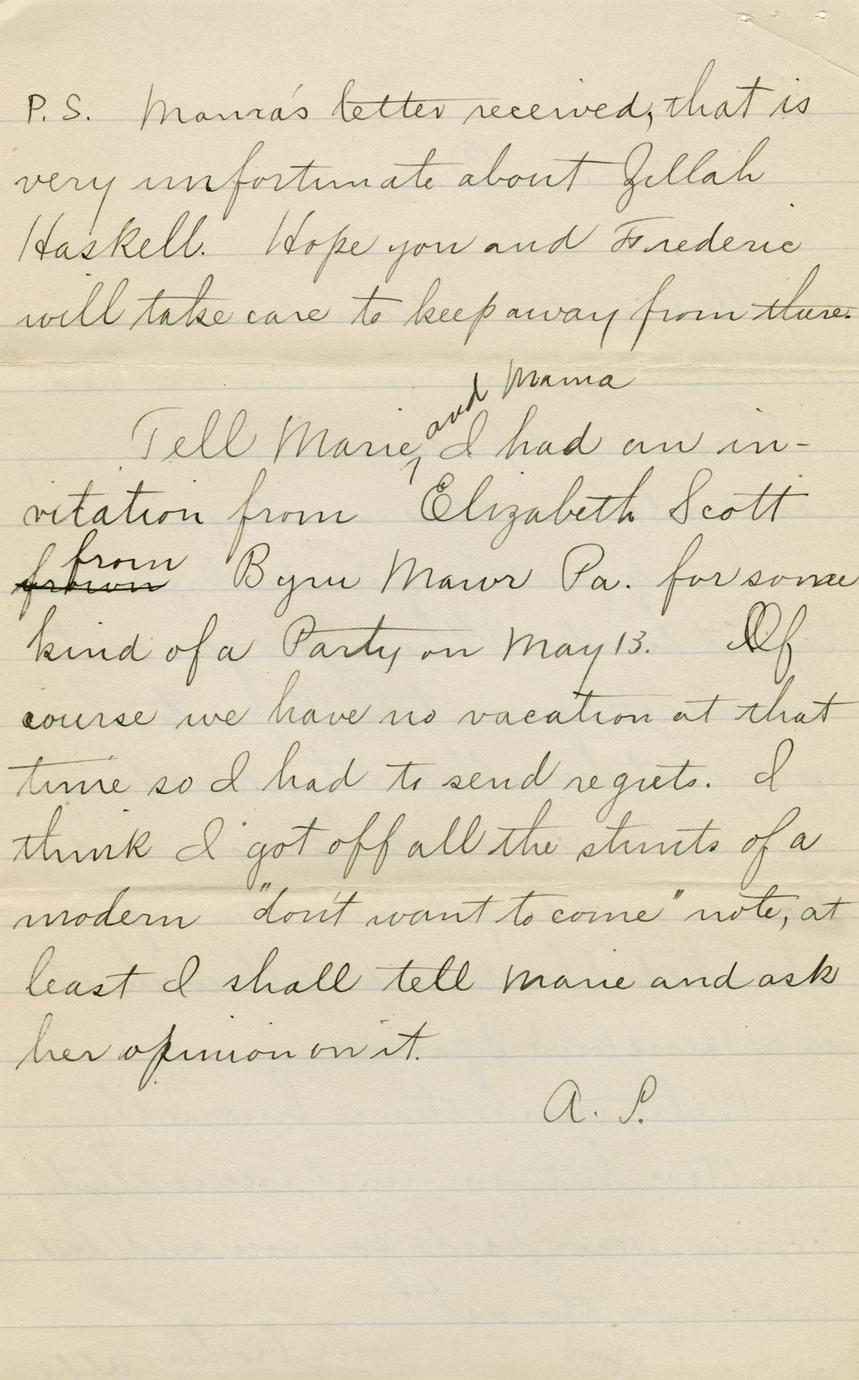 P.S. Mama's letter received, that is
very unfortunate about Zillah
Haskell. Hope you and Frederic
will take care to keep away from there.
and Mama
Tell Marie, I had an in-
vitation from Elizabeth Scott
from
Bynu Mawr Pa. for some
kind of a Party on May 13. Of
course we have no vacation at that
time so I had to send regrets. I
think I got off all the stunts of a
modern "don't want to come" note, at
least I shall tell Marie and ask
her opinion on it.
A. S.